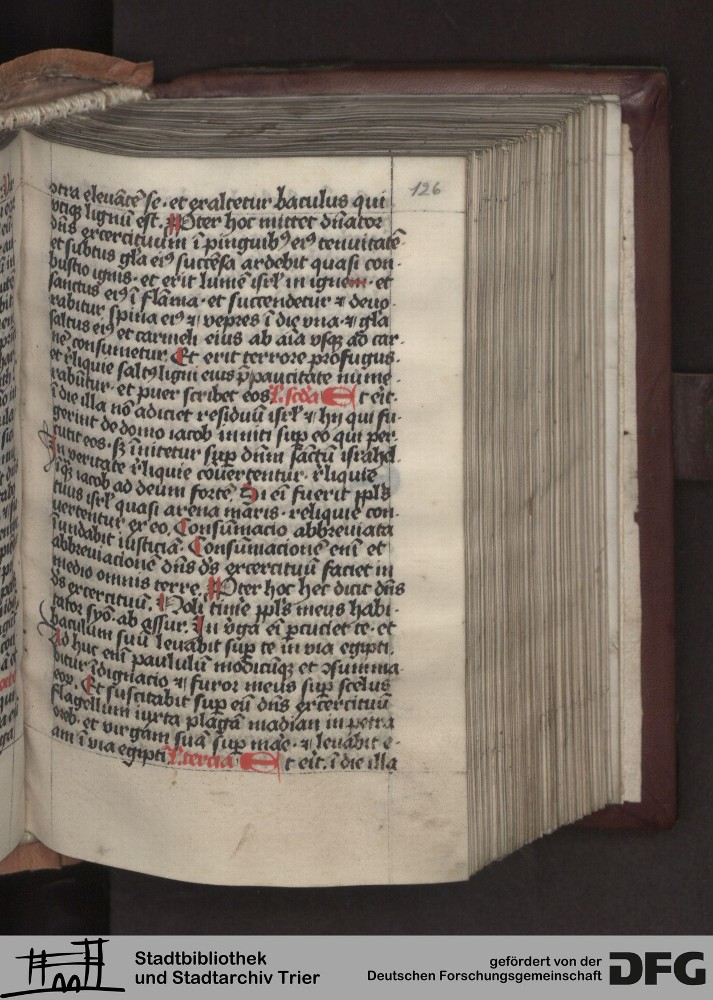 126
otra elevātē se · et exaltetur baculus qui
utiqꝫ lignū est. Pter hoc mittet dn̄ator
dn̄s exercituum ī pinguibꝰ eiꝰ tenuitatē ·
et subtus gl̄a eiꝰ succēsa ardebit quasi con ·
bustio ignis · et erit lumē isrl̄ in ignem · et
sanctus eiꝰ ī flāma · et succendetur ⁊ devo
rabitur spina eiꝰ ⁊ vepres ī die vna · ⁊ gl̄a
saltus eiꝰ et carmeli eius ab aīa vsqꝫ ad car ·
nē consumetur. Et erit terrore profugus ·
et rliquie saltꝰ ligni eius p̄ paucitate nume ·
rabūtur · et puer scribet eos L. scd̄a Et eīt ·
ī die illa nō adiciet residuū isrl̄ ⁊ hij qui fu ·
gerint de domo iacob inniti sup eo qui per ·
cutit eos · sꝫ īnitetur sup dn̄m sāctū israhel ·
In veritate rliquie cōuertentur · rliquie
īqꝫ iacob ad deum fortē. Si eī fuerit ppl̄s
tuus isrl̄ quasi arena maris · reliquie con ·
uertentur ex eo. Consūmacio abbreviata
īundabit iusticiā. Consūmacionē enī et
abbreviacionē dn̄s ds̄ exercituū faciet in
medio omnis terre. Pter hoc hec dicit dn̄s
ds̄ exercituū. Noli time ppl̄s meus habi ·
tator syō · ab assur. In v̄ga eī pcuciet te · et
baculum suū levabit sup te in via egipti.
Ad huc enī paululū modicūqꝫ et ↄsumma ·
bitur īdignatio ⁊ furor meus sup scelus
eoꝝ. Et suscitabit sup eū dn̄s exercituū
flagellum iuxta plagā madian in petra
oreb · et virgam suā sup mare · ⁊ levabit e ·
am ī via egipti L. tercia Et eīt. ī die illa
Stadtbibliothek
und Stadtarchiv Trier
gefördert von der
Deutschen Forschungsgemeinschaft
DFG